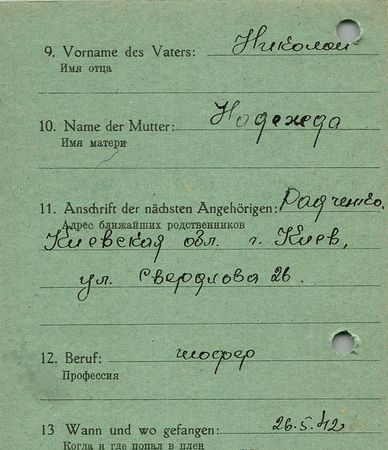 9. Vorname des Vaters: Николай
Имя отца
10. Name der Mutter: Надежда
Имя матери
11. Anschrift der nächsten Angehörigen: Радченко,
Адрес ближайших родственников
Киевская обл. г. Киев,
ул. Свердлова 26.
12. Beruf: шофер
Профессия
13 Wann und wo gefangen: 26.5.42
Когда и где попал в плен